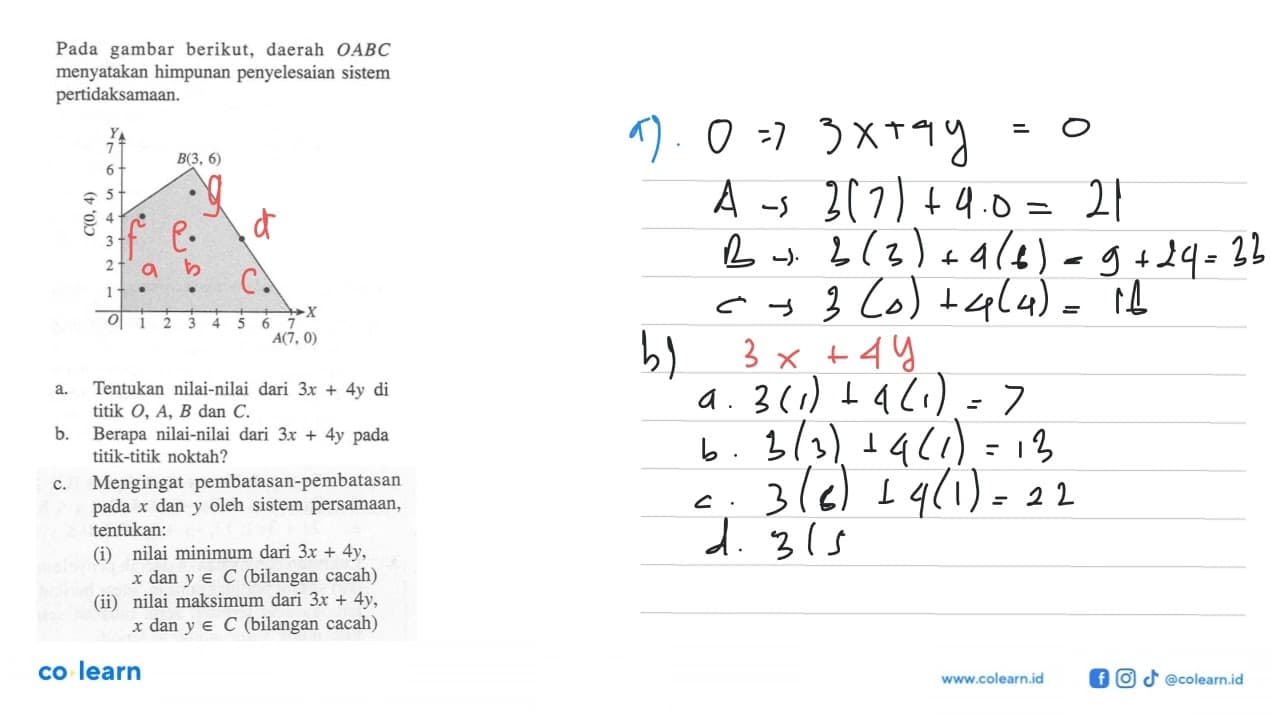 Pada gambar berikut, daerah OABC
menyatakan himpunan penyelesaian sistem
pertidaksamaan.
Y
7
6
5
4
3
2
1
B(3, 6)
C(0, 4)
g
f e d
a b c
O 1 2 3 4 5 6 7 X
A(7, 0)
a. Tentukan nilai-nilai dari 3x + 4y di
titik O, A, B dan C.
b. Berapa nilai-nilai dari 3x + 4y pada
titik-titik noktah?
c. Mengingat pembatasan-pembatasan
pada x dan y oleh sistem persamaan,
tentukan:
(i) nilai minimum dari 3x + 4y,
x dan y ∈ C (bilangan cacah)
(ii) nilai maksimum dari 3x + 4y,
x dan y ∈ C (bilangan cacah)
a). O => 3x+4y = 0
A → 3(7) + 4.0 = 21
B → 3(3) + 4(6) = 9 + 24 = 33
C → 3(0) + 4(4) = 16
b) 3x + 4y
a. 3(1) + 4(1) = 7
b. 3(3) + 4(1) = 13
c. 3(6) + 4(1) = 22
d. 3(5
co learn
www.colearn.id
@colearn.id